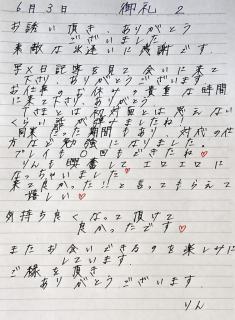 6月3日 御礼 2
お誘い頂き、ありがとう
ございました
素敵な出逢いに感謝です
写メ日記等を見て会いに来て
下さり、ありがとうございます
お仕事のお休みの貴重な時間
に来て下さり、ありがとう
さまとは初対面とは思えない
くらい話が弾みましたね
同業だった期間もあり、対応の仕
方など勉強になりました。
プレイも 回もできたね♥
りんも興奮してエロエロに
なっちゃいました♥
来て良かった!!と言ってもらえて
嬉しい♥
気持ち良くなって頂けて
良かったです♥
またお会いできるのを楽しみに
しています。
ご縁を頂き
ありがとうございます
りん